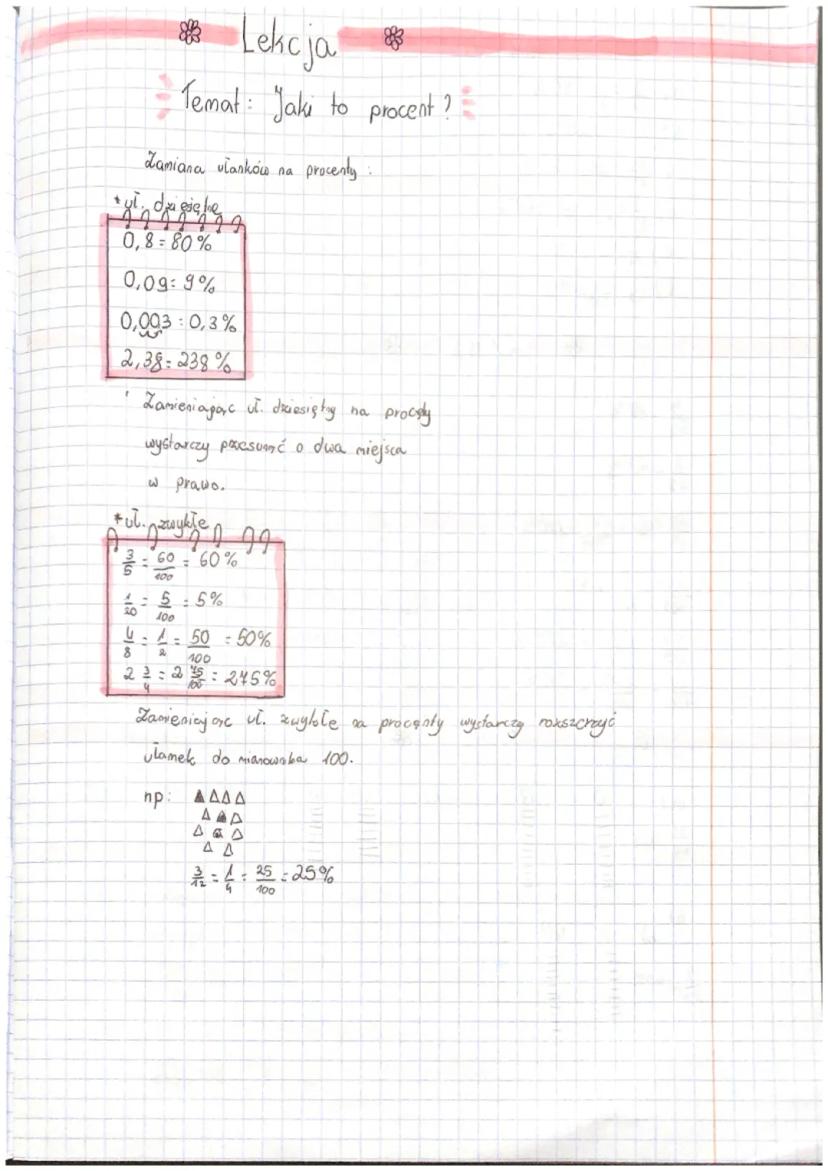 Lekcja
Temat: Jaki to procent?
Zamiana ułamków na procenty:
* uł. dziesiętne
0,8 = 80%
0,09 = 9%
0,003 = 0,3%
2,38 = 238%
Zamieniając uł. dziesiętny na procęty
wystarczy przesunąć o dwa miejsca
w prawo.
* uł. zwykłe
3/5 = 60/100 = 60%
1/20 = 5/100 = 5%
4/8 = 1/2 = 50/100 = 50%
2 3/4 = 2 75/100 = 275%
Zamieniając uł. zwykłe na procęnty wystarczy roszszerzyć
ułamek do mianownika 100.
np:
3/12 = 1/4 = 25/100 = 25%